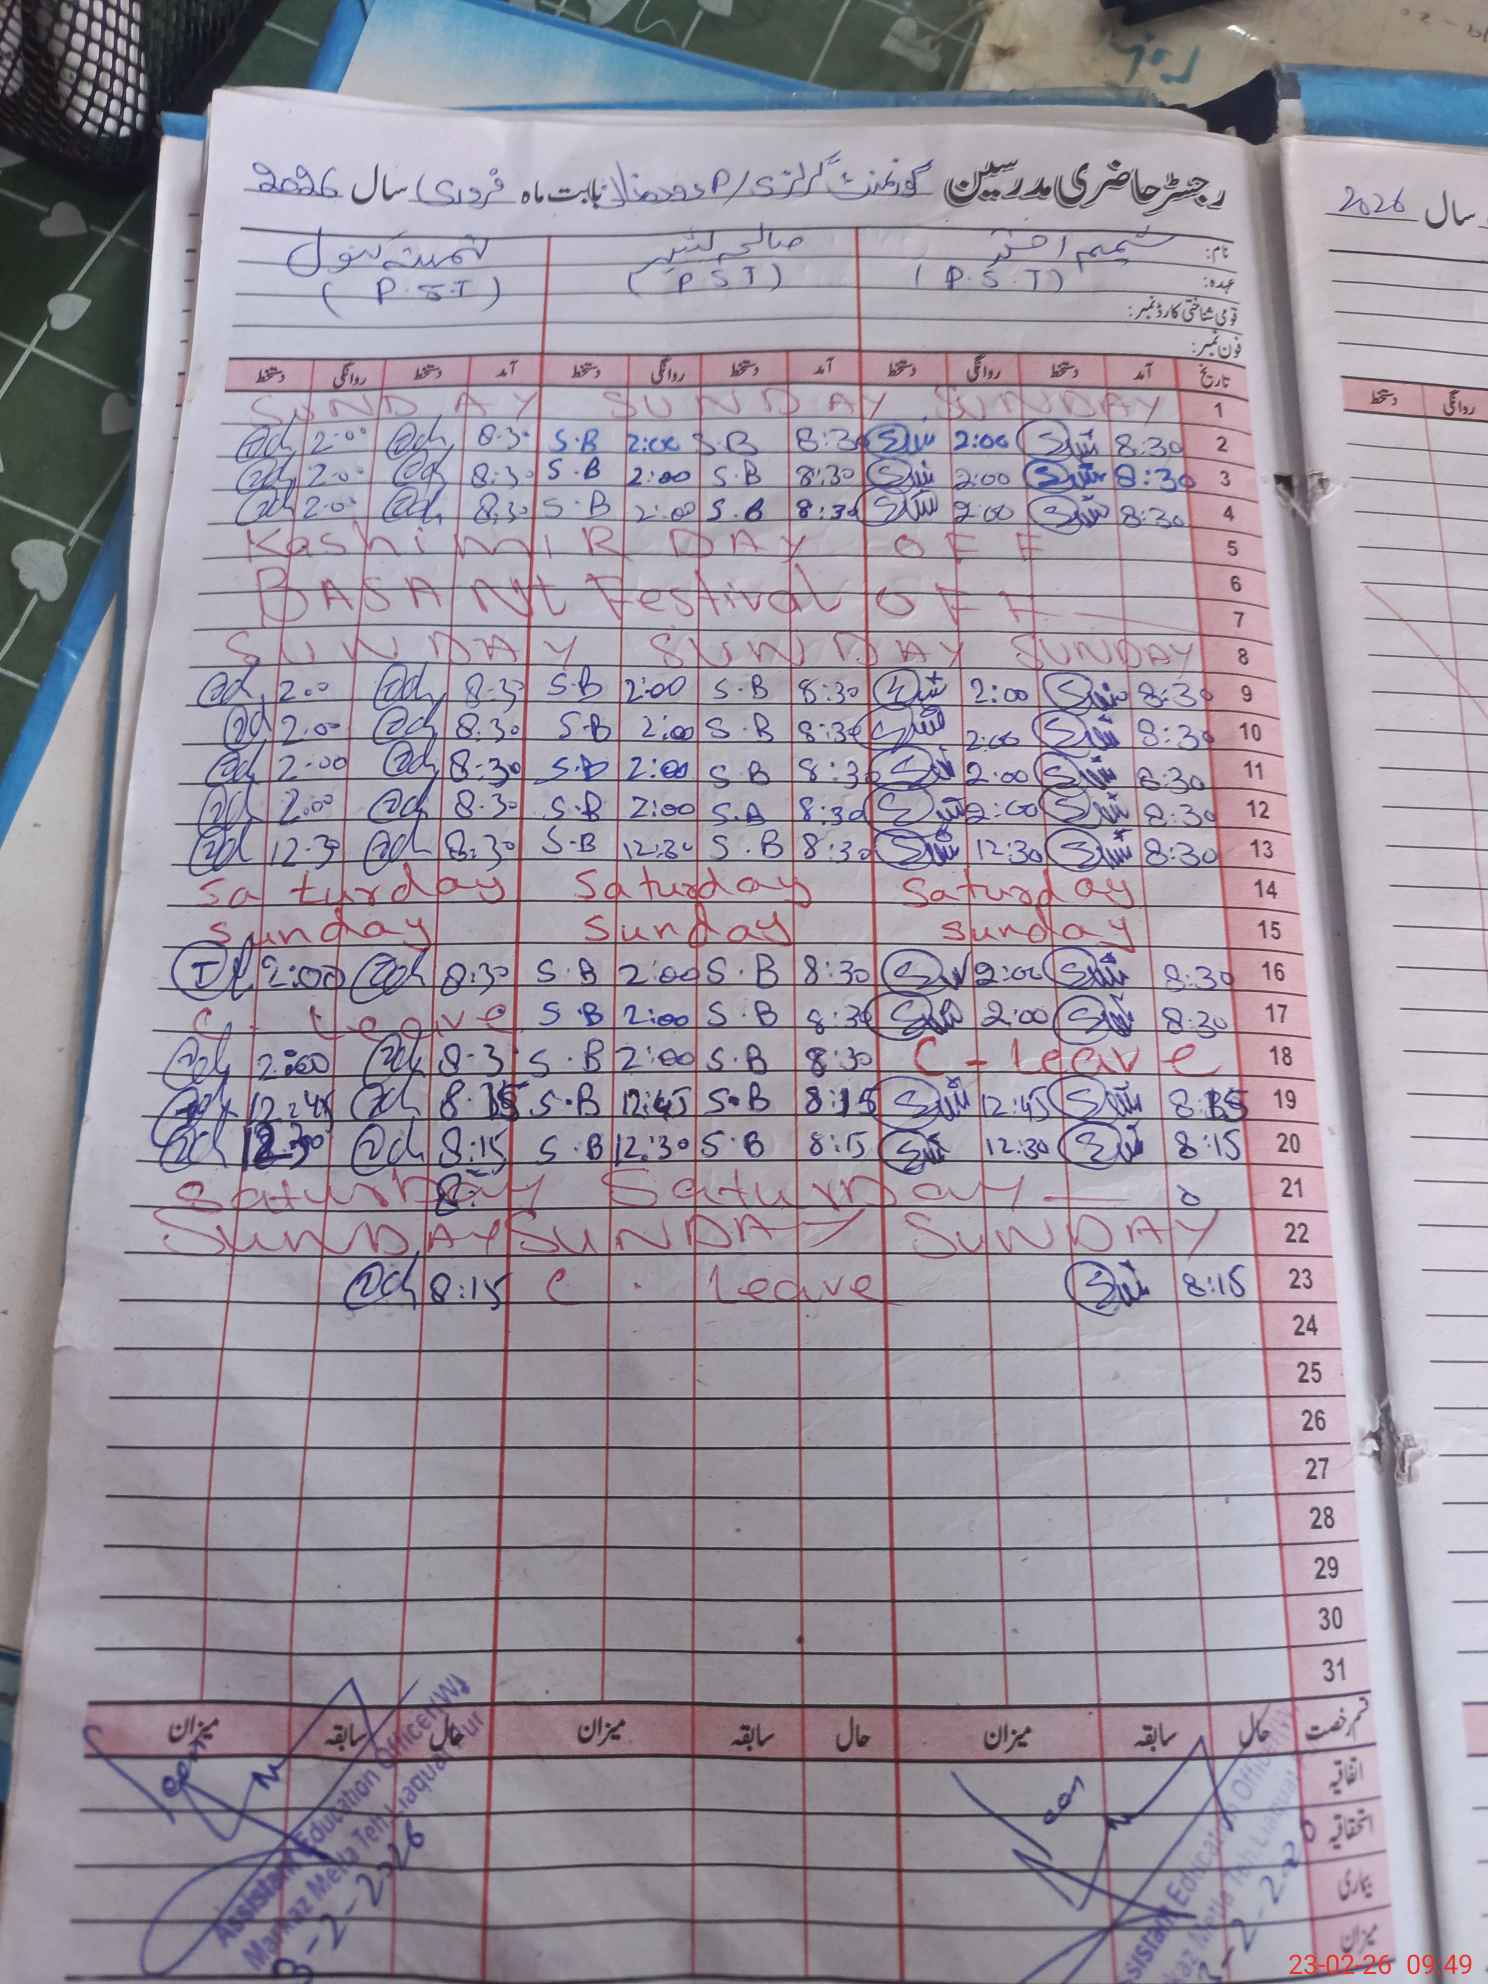 رجسٹر حاضری مدرسین گورنمنٹ گرلز بابت ماہ فروری سال 2026
سال 2026
نام: شمیم اختر صالحہ
عہدہ: (P.S.T) (P S T) (P.S.T)
قومی شناختی کارڈ نمبر:
فون نمبر:
تاریخ آمد دستخط روانگی دستخط آمد دستخط روانگی دستخط آمد دستخط روانگی دستخط
روانگی دستخط
SUNDAY SUNDAY SUNDAY 1
2:00 8:30 S.B 2:00 S.B 8:30 2:00 8:30 2
2:00 8:30 S.B 2:00 S.B 8:30 2:00 8:30 3
2:00 8:30 S.B 2:00 S.B 8:30 2:00 8:30 4
KashimIR DAY OFF 5
BASANt Festival OFF 6
7
SUNDAY SUNDAY SUNDAY 8
2:00 8:30 S.B 2:00 S.B 8:30 2:00 8:30 9
2:00 8:30 S.B 2:00 S.B 8:30 2:00 8:30 10
2:00 8:30 S.B 2:00 S.B 8:30 2:00 8:30 11
2:00 8:30 S.B 2:00 S.B 8:30 2:00 8:30 12
12:30 8:30 S.B 12:30 S.B 8:30 12:30 8:30 13
Saturday Saturday Saturday 14
Sunday Sunday Sunday 15
2:00 8:30 S.B 2:00 S.B 8:30 2:00 8:30 16
C. Leave S.B 2:00 S.B 8:30 2:00 8:30 17
2:00 8:3 S.B 2:00 S.B 8:30 C-Leave 18
12:45 8:15 S.B 12:45 S.B 8:15 12:45 8:15 19
12:30 8:15 S.B 12:30 S.B 8:15 12:30 8:15 20
SaturDay SaturDay 21
SUNDAY SUNDAY SUNDAY 22
8:15 C. Leave 8:15 23
24
25
26
27
28
29
30
31
قسم رخصت حال سابقہ میزان حال سابقہ میزان حال سابقہ میزان
اتفاقیہ
استحقاقیہ
بیماری
میزان
Assistant Education Officer(W)
Markaz Mella Teh Liaquat Pur
Assistant Education Officer(W)
23-02-26 09:49